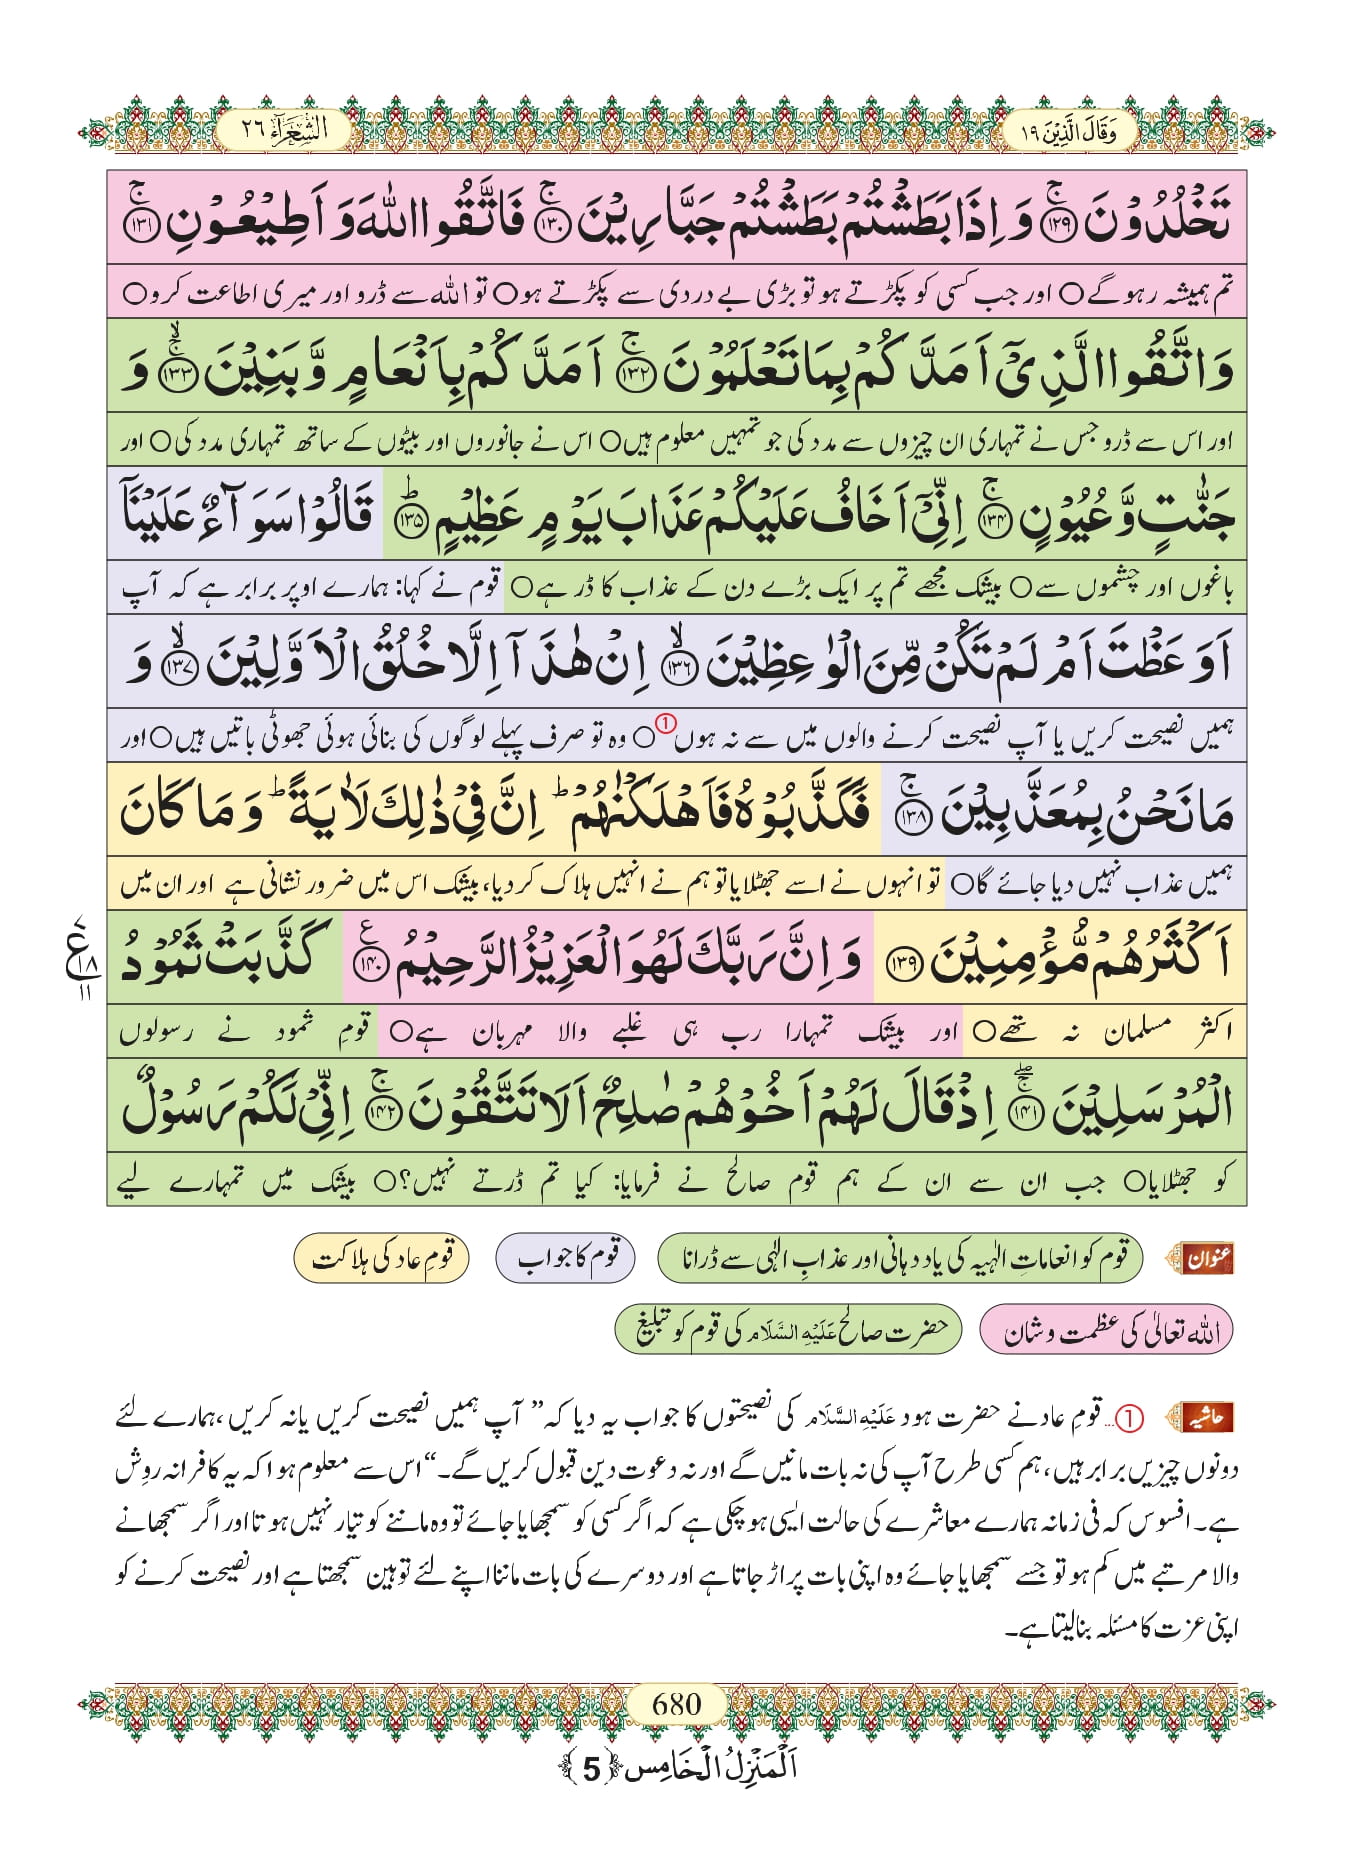 وَقَالَ الَّذِیْنَ ۱۹
الشُّعَرَآء ۲۶
تَخْلُدُوْنَ ﴿۱۲۹﴾ۚ وَ اِذَا بَطَشْتُمْ بَطَشْتُمْ جَبَّارِیْنَ ﴿۱۳۰﴾ۚ فَاتَّقُوا اللّٰهَ وَ اَطِیْعُوْنِ ﴿۱۳۱﴾ۚ
تم ہمیشہ رہوگے○ اور جب کسی کو پکڑتے ہو تو بڑی بے دردی سے پکڑتے ہو○ تو اللہ سے ڈرو اور میری اطاعت کرو○
وَ اتَّقُوا الَّذِیْۤ اَمَدَّكُمْ بِمَا تَعْلَمُوْنَ ﴿۱۳۲﴾ۚ اَمَدَّكُمْ بِاَنْعَامٍ وَّ بَنِیْنَ ﴿۱۳۳﴾ۚۙ وَ
اور اس سے ڈرو جس نے تمہاری ان چیزوں سے مدد کی جو تمہیں معلوم ہیں○ اس نے جانوروں اور بیٹوں کے ساتھ تمہاری مدد کی○ اور
جَنّٰتٍ وَّ عُیُوْنٍ ﴿۱۳۴﴾ۚ اِنِّیْۤ اَخَافُ عَلَیْكُمْ عَذَابَ یَوْمٍ عَظِیْمٍ ﴿۱۳۵﴾ؕ قَالُوْا سَوَآءٌ عَلَیْنَاۤ
باغوں اور چشموں سے○ بیشک مجھے تم پر ایک بڑے دن کے عذاب کا ڈر ہے○ قوم نے کہا: ہمارے اوپر برابر ہے کہ آپ
اَوَ عَظْتَ اَمْ لَمْ تَكُنْ مِّنَ الْوٰعِظِیْنَ ﴿۱۳۶﴾ۙ اِنْ هٰذَاۤ اِلَّا خُلُقُ الْاَوَّلِیْنَ ﴿۱۳۷﴾ۙ وَ
ہمیں نصیحت کریں یا آپ نصیحت کرنے والوں میں سے نہ ہوں○① وہ تو صرف پہلے لوگوں کی بنائی ہوئی جھوٹی باتیں ہیں○ اور
مَا نَحْنُ بِمُعَذَّبِیْنَ ﴿۱۳۸﴾ۚ فَكَذَّبُوْهُ فَاَهْلَكْنٰهُمْؕ اِنَّ فِیْ ذٰلِكَ لَاٰیَةًؕ وَ مَا كَانَ
ہمیں عذاب نہیں دیا جائے گا○ تو انہوں نے اسے جھٹلایا تو ہم نے انہیں ہلاک کردیا، بیشک اس میں ضرور نشانی ہے اور ان میں
اَكْثَرُهُمْ مُّؤْمِنِیْنَ ﴿۱۳۹﴾ وَ اِنَّ رَبَّكَ لَهُوَ الْعَزِیْزُ الرَّحِیْمُ ﴿۱۴۰﴾ۧ كَذَّبَتْ ثَمُوْدُ
۷
ع ۱۸
۱۱
اکثر مسلمان نہ تھے○ اور بیشک تمہارا رب ہی غلبے والا مہربان ہے○ قومِ ثمود نے رسولوں
الْمُرْسَلِیْنَ ﴿۱۴۱﴾ۚۖ اِذْ قَالَ لَهُمْ اَخُوْهُمْ صٰلِحٌ اَلَا تَتَّقُوْنَ ﴿۱۴۲﴾ۚ اِنِّیْ لَكُمْ رَسُوْلٌ
کو جھٹلایا○ جب ان سے ان کے ہم قوم صالح نے فرمایا: کیا تم ڈرتے نہیں؟○ بیشک میں تمہارے لیے
عنوان قوم کو انعاماتِ الٰہیہ کی یاددہانی اور عذابِ الٰہی سے ڈرانا قوم کا جواب قومِ عاد کی ہلاکت
اللہ تعالیٰ کی عظمت و شان حضرت صالح عَلَیْہِ السَّلَام کی قوم کو تبلیغ
حاشیہ ①... قومِ عاد نے حضرت ہود عَلَیْہِ السَّلَام کی نصیحتوں کا جواب یہ دیا کہ” آپ ہمیں نصیحت کریں یا نہ کریں، ہمارے لئے
دونوں چیزیں برابر ہیں، ہم کسی طرح آپ کی نہ بات مانیں گے اور نہ دعوت دین قبول کریں گے۔“ اس سے معلوم ہوا کہ یہ کافرانہ روِش
ہے۔ افسوس کہ فی زمانہ ہمارے معاشرے کی حالت ایسی ہوچکی ہے کہ اگر کسی کو سمجھایا جائے تو وہ ماننے کو تیار نہیں ہوتا اور اگر سمجھانے
والا مرتبے میں کم ہو تو جسے سمجھایا جائے وہ اپنی بات پر اڑ جاتا ہے اور دوسرے کی بات ماننا اپنے لئے توہین سمجھتا ہے اور نصیحت کرنے کو
اپنی عزت کا مسئلہ بنالیتا ہے۔
680
اَلْمَنْزِلُ الْخَامِس ﴿5﴾